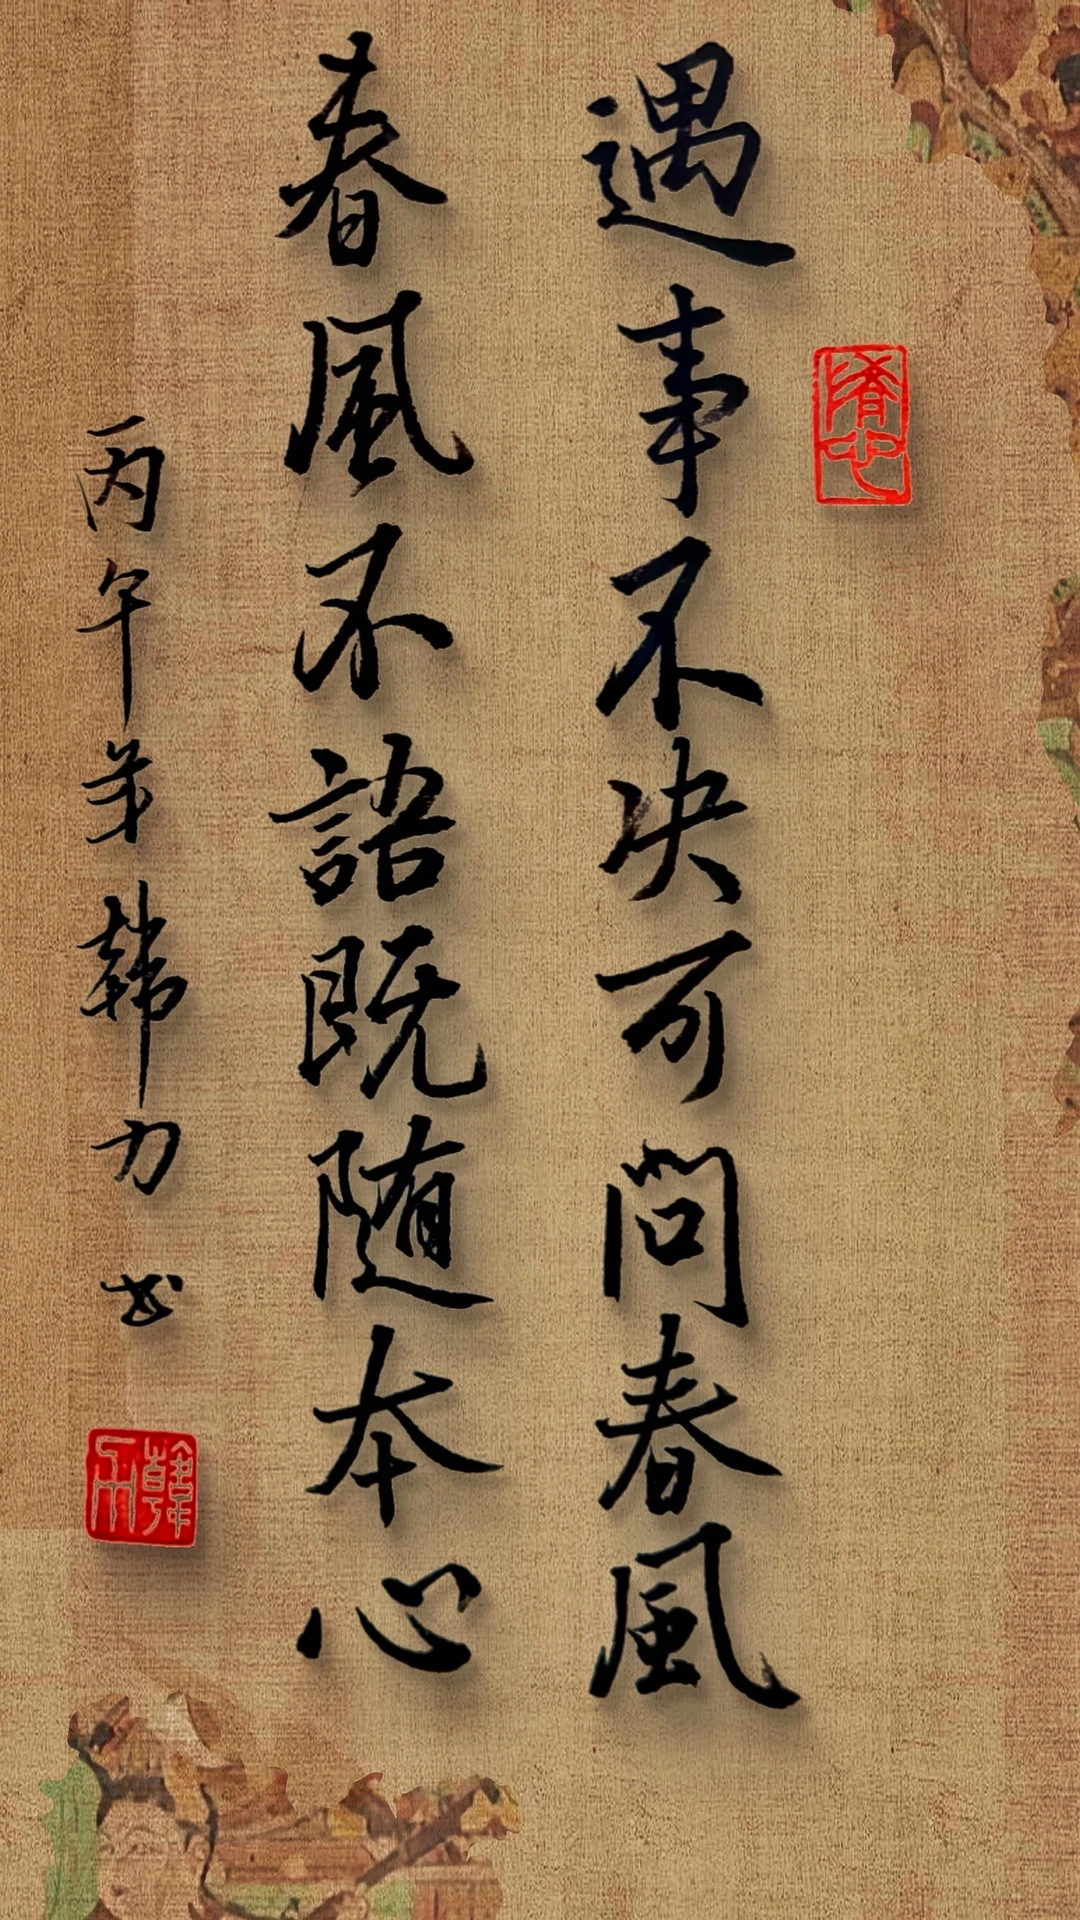 遇事不决可问春风
春風不語既随本心
丙午羊韓力书